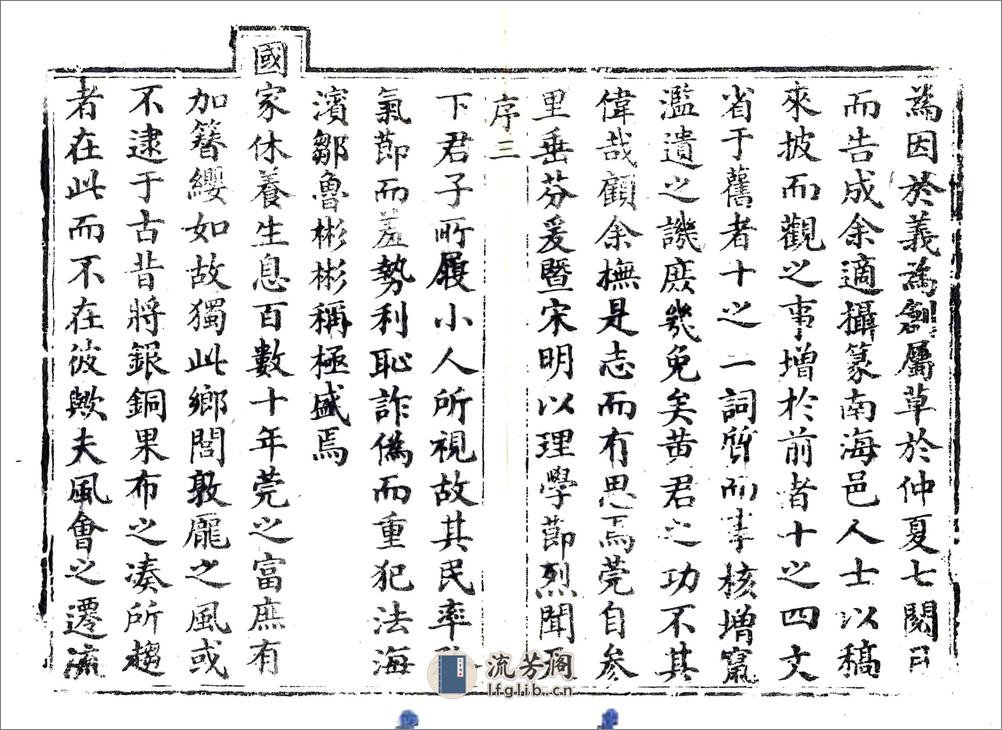 為因於義為創屬草於仲夏七閱月
而告成余適攝篆南海邑人士以稿
來披而觀之事增於前者十之四文
省于舊者十之一詞質而事核增竄
濫遺之譏庶幾免矣黄君之功不其
偉哉顧余撫是志而有思焉莞自叅
里垂芬爰暨宋明以理學節烈聞
序三
下君子所履小人所視故其民率
氣節而羞勢利恥詐僞而重犯法海
濱鄒魯彬彬稱極盛焉
國家休養生息百數十年莞之富庶有
加簪纓如故獨此鄉閭敦龐之風或
不逮于古昔將銀銅果布之凑所趨
者在此而不在彼歟夫風會之遷流
流芳阁
lfglib.cn